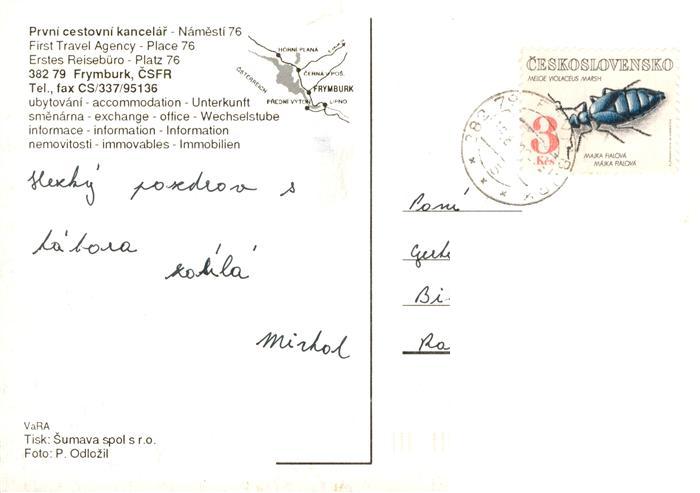 První cestovní kancelář - Náměstí 76
First Travel Agency - Place 76
Erstes Reisebüro - Platz 76
382 79 Frymburk, ČSFR
Tel., fax CS/337/95136
ubytování - accommodation - Unterkunft
směnárna - exchange - office - Wechselstube
informace - information - Information
nemovitosti - immovables - Immobilien
HORNÍ PLANÁ
ČERNÁ V POŠ.
ÖSTERREICH
FRYMBURK
PŘEDNÍ VÝTOŇ
LIPNO
ČESKOSLOVENSKO
MELOE VIOLACEUS MARSH
3
Kčs
MAJKA FIALOVÁ
MÁJKA FIALOVÁ
382 79
Hezký pozdrav s
tábora
Michal
Paní
VaRA
Tisk: Šumava spol s r.o.
Foto: P. Odložil